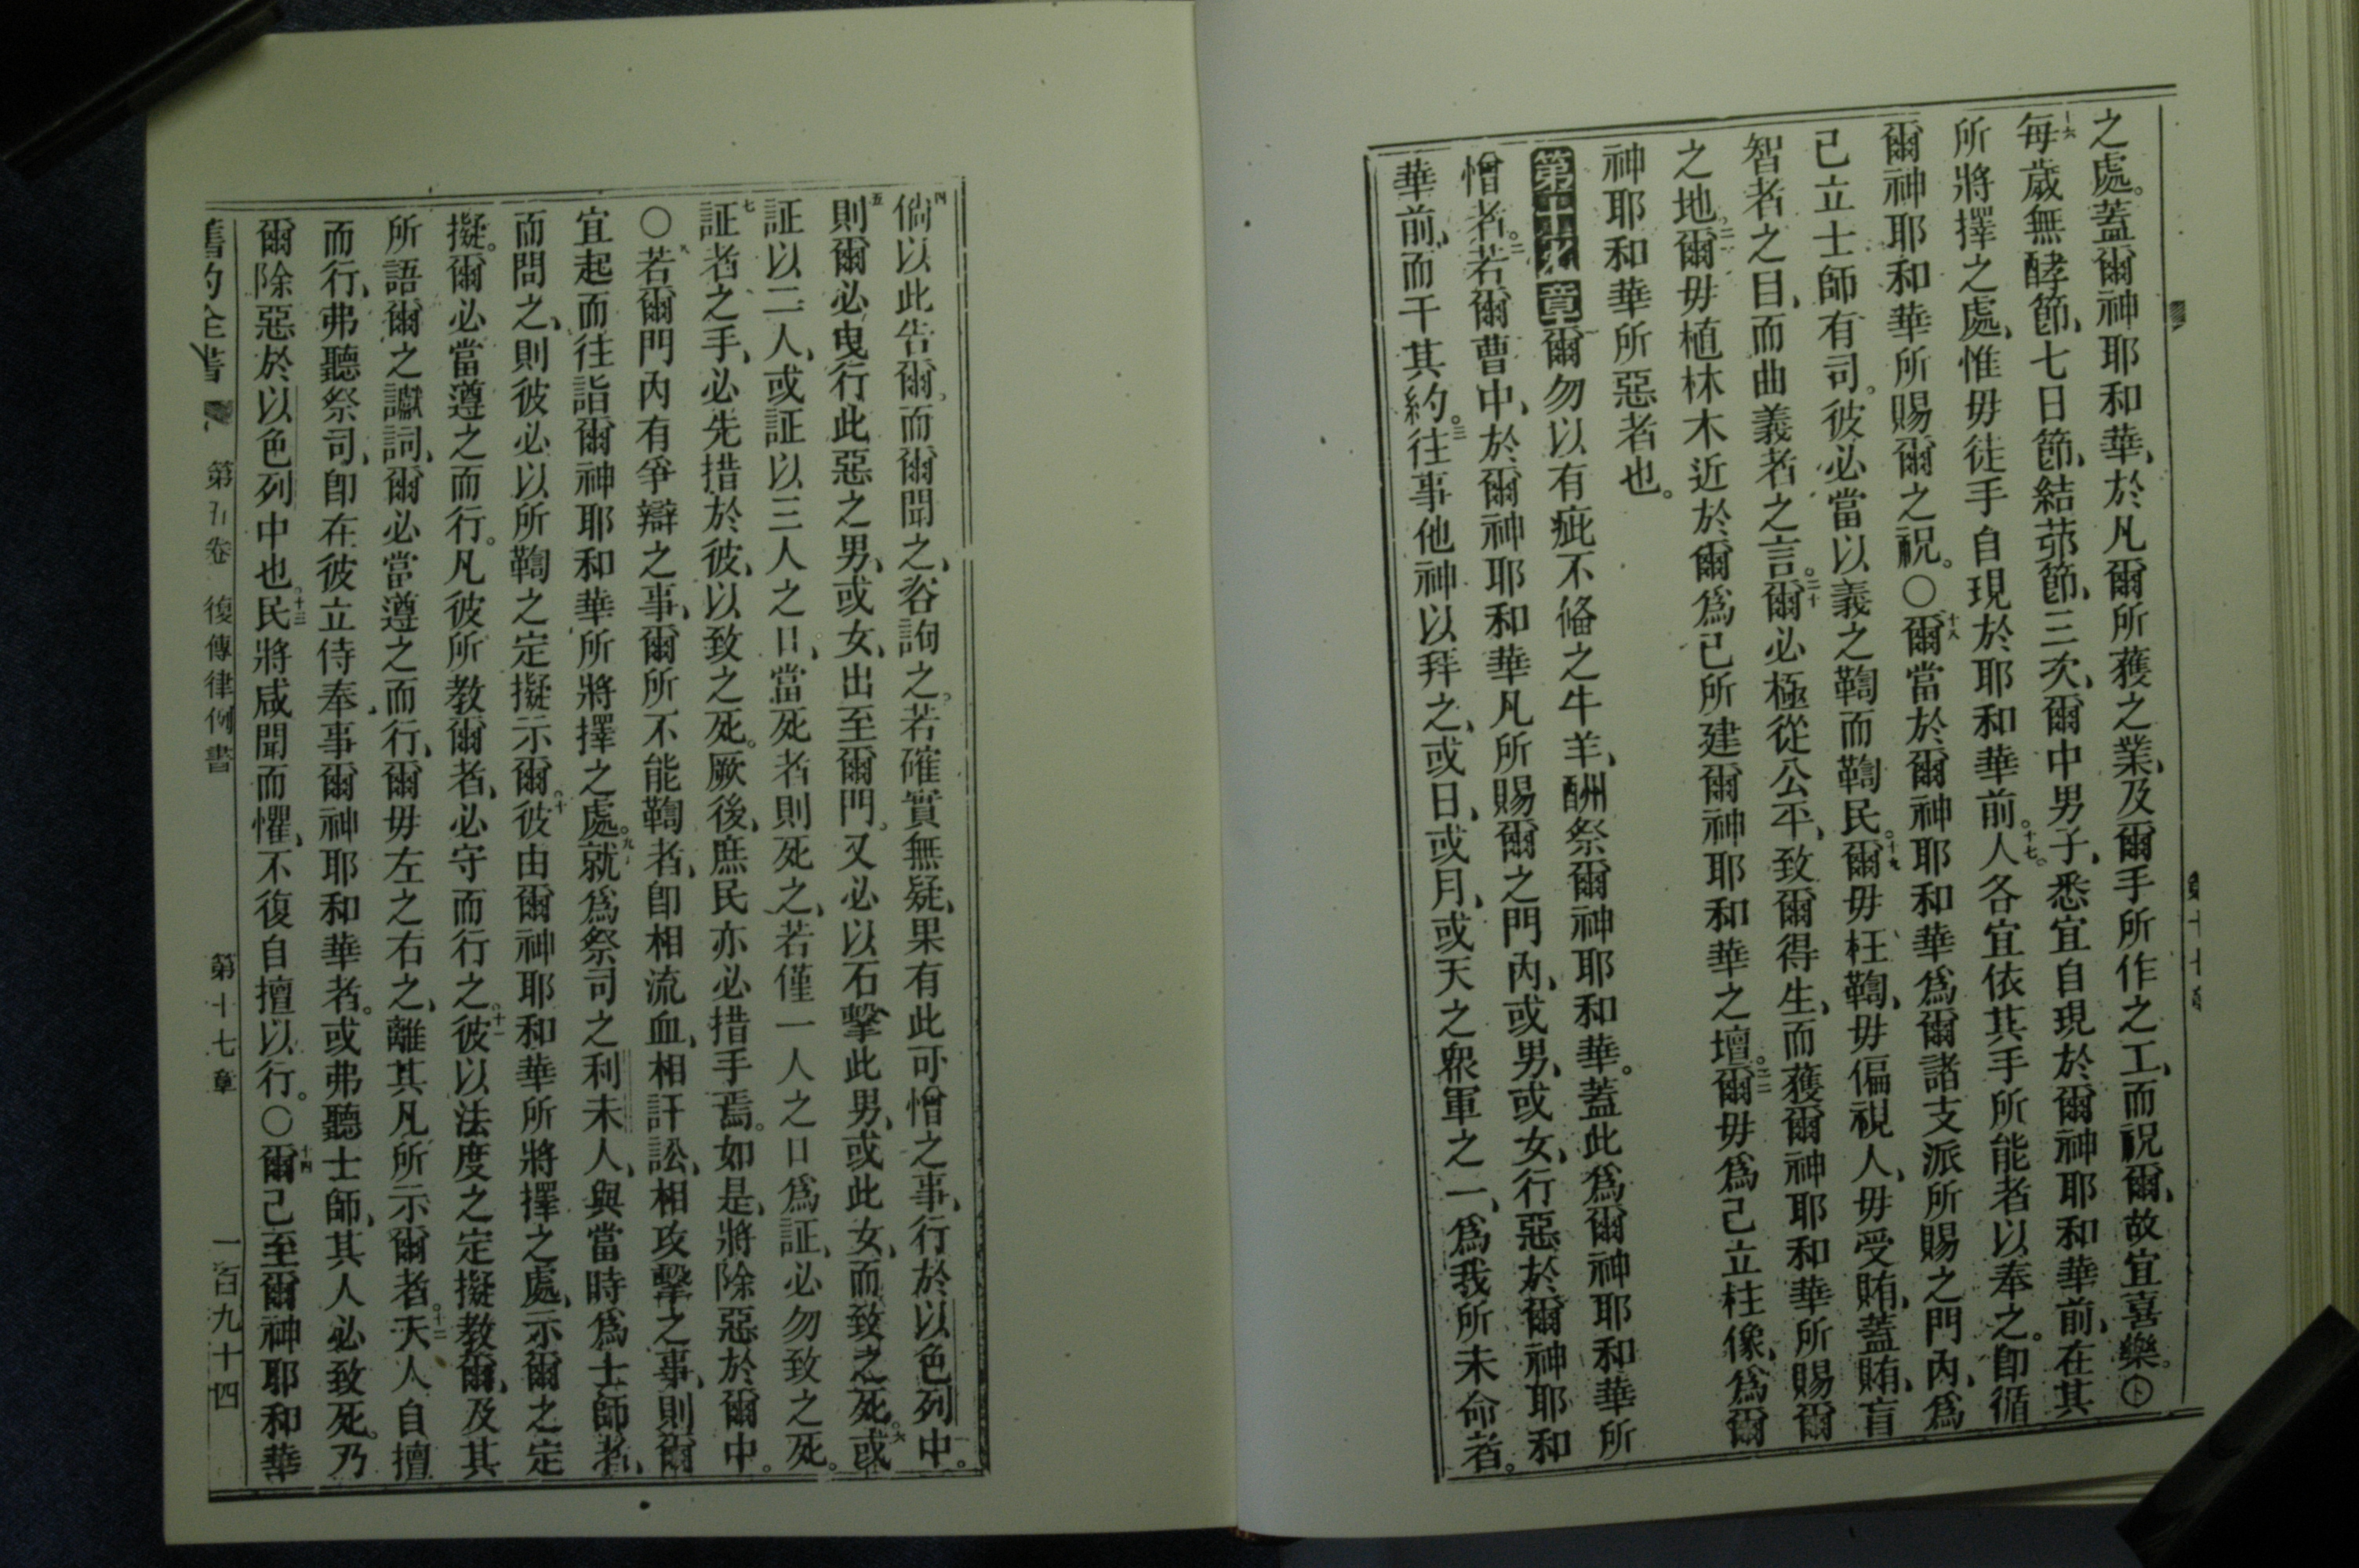 之處。蓋爾神耶和華、於凡爾所獲之業、及爾手所作之工、而祝爾、故宜喜樂。
十六每歲無酵節、七日節、結茆節、三次、爾中男子、悉宜自現於爾神耶和華前、在其
所將擇之處、惟毋徒手自現於耶和華前。十七人各宜依其手所能者以奉之。卽循
爾神耶和華所賜爾之祝。〇十八爾當於爾神耶和華爲爾諸支派所賜之門內、爲
己立士師有司。彼必當以義之鞫而鞫民。十九爾毋枉鞫、毋偏視人、毋受賄、蓋賄、盲
智者之目、而曲義者之言。二十爾必極從公平、致爾得生、而獲爾神耶和華所賜爾
之地。二一爾毋植林木近於爾爲己所建爾神耶和華之壇。二二爾毋爲己立柱像、爲爾
神耶和華所惡者也。
第十七章一爾勿以有疵不俻之牛羊、酬祭爾神耶和華。蓋此爲爾神耶和華所
憎者。二若爾曹中、於爾神耶和華凡所賜爾之門內、或男、或女、行惡於爾神耶和
華前、而干其約。三往事他神以拜之、或日、或月、或天之衆軍之一、爲我所未命者。
四倘以此告爾、而爾聞之、咨詢之。若確實無疑、果有此可憎之事、行於以色列中。
五則爾必曳行此惡之男、或女、出至爾門。又必以石擊此男、或此女、而致之死。六或
証以二人、或証以三人之口、當死者則死之、若僅一人之口爲証、必勿致之死。
七証者之手、必先措於彼、以致之死。厥後、庶民亦必措手焉。如是、將除惡於爾中。
〇八若爾門內有爭辯之事、爾所不能鞫者、卽相流血、相訐訟、相攻擊之事、則爾
宜起而往詣爾神耶和華所將擇之處。九就爲祭司之利未人、與當時爲士師者、
而問之、則彼必以所鞫之定擬示爾。十彼由爾神耶和華所將擇之處、示爾之定
擬。爾必當遵之而行。凡彼所教爾者、必守而行之。十一彼以法度之定擬教爾、及其
所語爾之讞詞、爾必當遵之而行、爾毋左之右之、離其凡所示爾者。十二夭人自擅
而行、弗聽祭司、卽在彼立侍奉、事爾神耶和華者。或弗聽士師、其人必致死。乃
爾除惡於以色列中也。十三民將咸聞而懼、不復自擅以行。〇十四爾己至爾神耶和華
舊約全書 第五卷 復傳律例書 第十七章 一百九十四